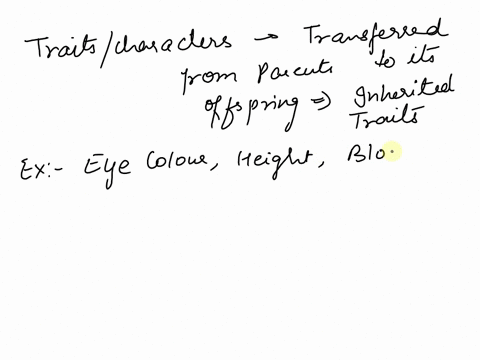 Traits/characters → Transferred
from Parents to its
offspring ⇒ Inherited
Traits
Ex:- Eye Colour, Height, Blo